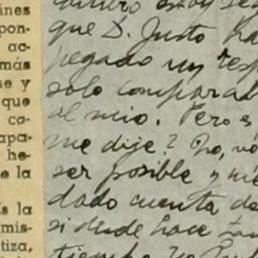 ines
pon-
ac-
más
e y
que
co-
apa-
he-
e la
s la
mis-
tiza,
quiero estoy se
que D. Justo ha
pegado un resp
solo comparab
al mio. Pero e
me dije? No, no
ser posible y me
dado cuenta de
si desde hace
tiempo